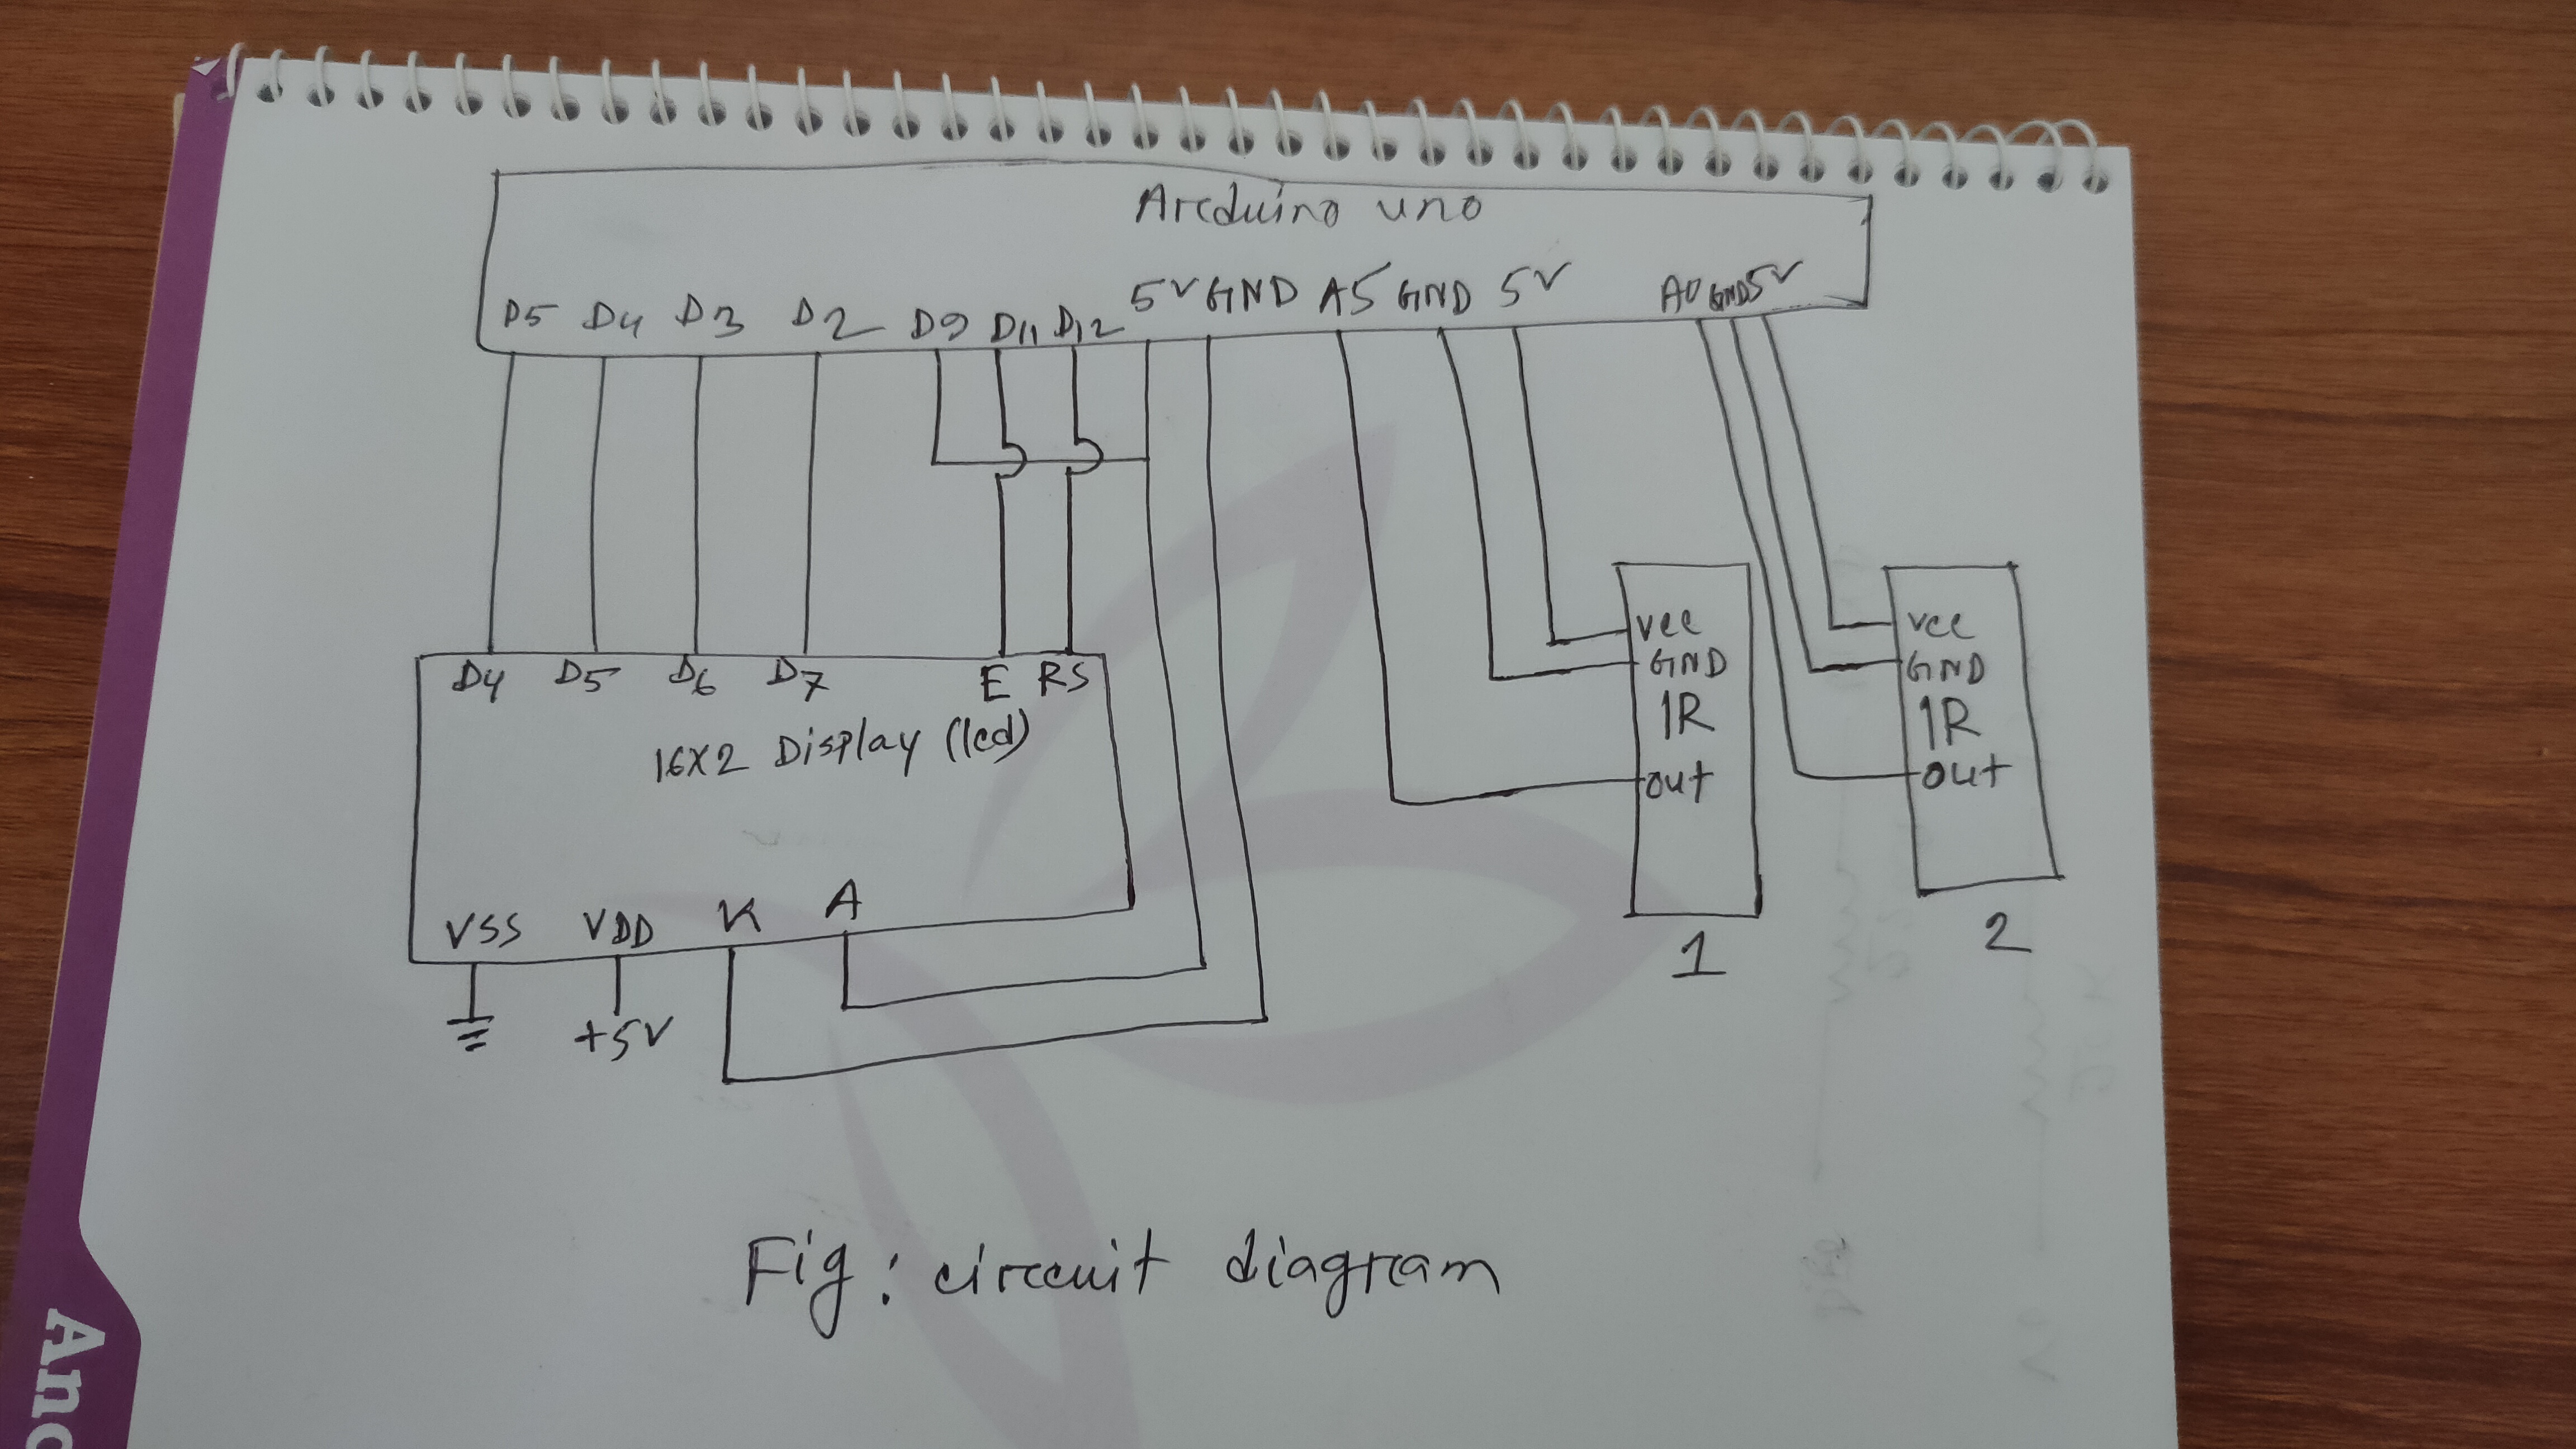 Arcduino uno
D5 D4 D3 D2 D9 D11 D12 5V GND A5 GND 5V A0 GND 5V
D4 D5 D6 D7 E RS
16X2 Display (lcd)
VSS VDD K A
+5V
vcc
GND
IR
out
1
vcc
GND
IR
out
2
Fig: circcuit diagram